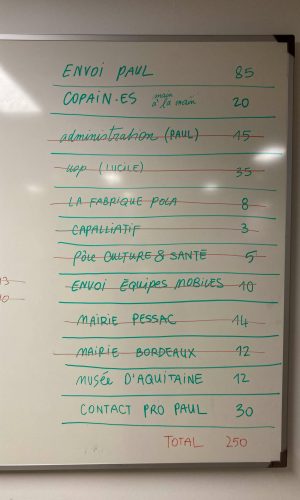 ENVOI PAUL 85
COPAIN·ES main à la main 20
administration (PAUL) 15
usp (LUCILE) 35
LA FABRIQUE POLA 8
CAPALLIATIF 3
Pôle CULTURE & SANTÉ 5
ENVOI ÉQUIPES MOBILES 10
MAIRIE PESSAC 14
MAIRIE BORDEAUX 12
MUSÉE D'AQUITAINE 12
CONTACT PRO PAUL 30
TOTAL 250